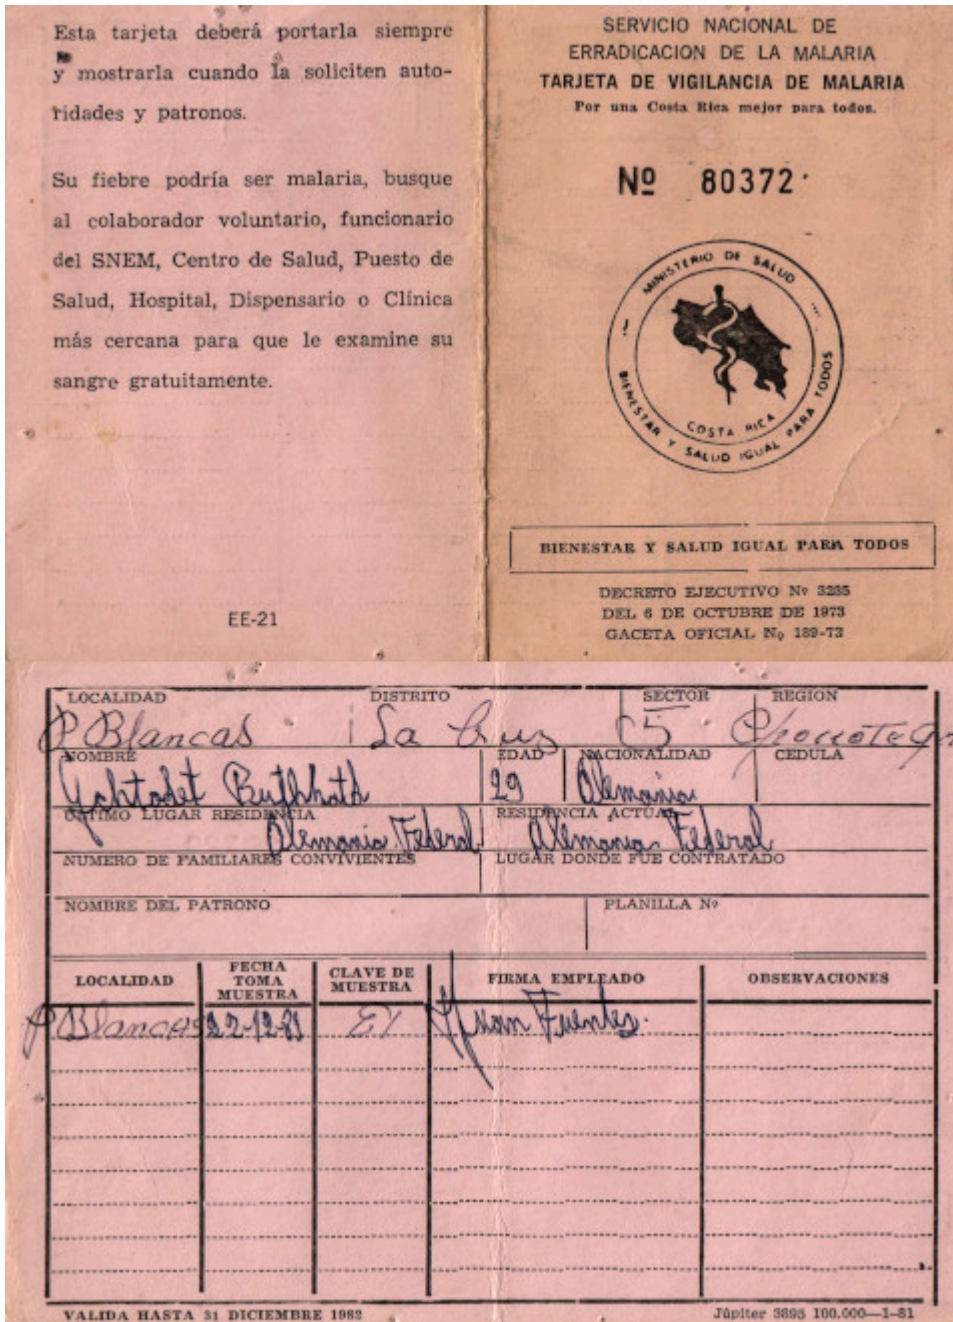 Esta tarjeta deberá portarla siempre
y mostrarla cuando la soliciten auto-
ridades y patronos.
Su fiebre podría ser malaria, busque
al colaborador voluntario, funcionario
del SNEM, Centro de Salud, Puesto de
Salud, Hospital, Dispensario o Clínica
más cercana para que le examine su
sangre gratuitamente.
EE-21
SERVICIO NACIONAL DE
ERRADICACION DE LA MALARIA
TARJETA DE VIGILANCIA DE MALARIA
Por una Costa Rica mejor para todos.
Nº 80372
MINISTERIO DE SALUD
COSTA RICA
BIENESTAR Y SALUD IGUAL PARA TODOS
BIENESTAR Y SALUD IGUAL PARA TODOS
DECRETO EJECUTIVO Nº 3235
DEL 6 DE OCTUBRE DE 1973
GACETA OFICIAL Nº 189-73
LOCALIDAD DISTRITO SECTOR REGION
P Blancas La Cruz 5
NOMBRE EDAD NACIONALIDAD CEDULA
29 Alemania
ULTIMO LUGAR RESIDENCIA RESIDENCIA ACTUAL
Alemania Federal Alemania Federal
NUMERO DE FAMILIARES CONVIVIENTES LUGAR DONDE FUE CONTRATADO
NOMBRE DEL PATRONO PLANILLA Nº
LOCALIDAD FECHA TOMA MUESTRA CLAVE DE MUESTRA FIRMA EMPLEADO OBSERVACIONES
P Blancas 22-12-81 Juan Fuentes
VALIDA HASTA 31 DICIEMBRE 1982 Júpiter 3895 100.000—1-81